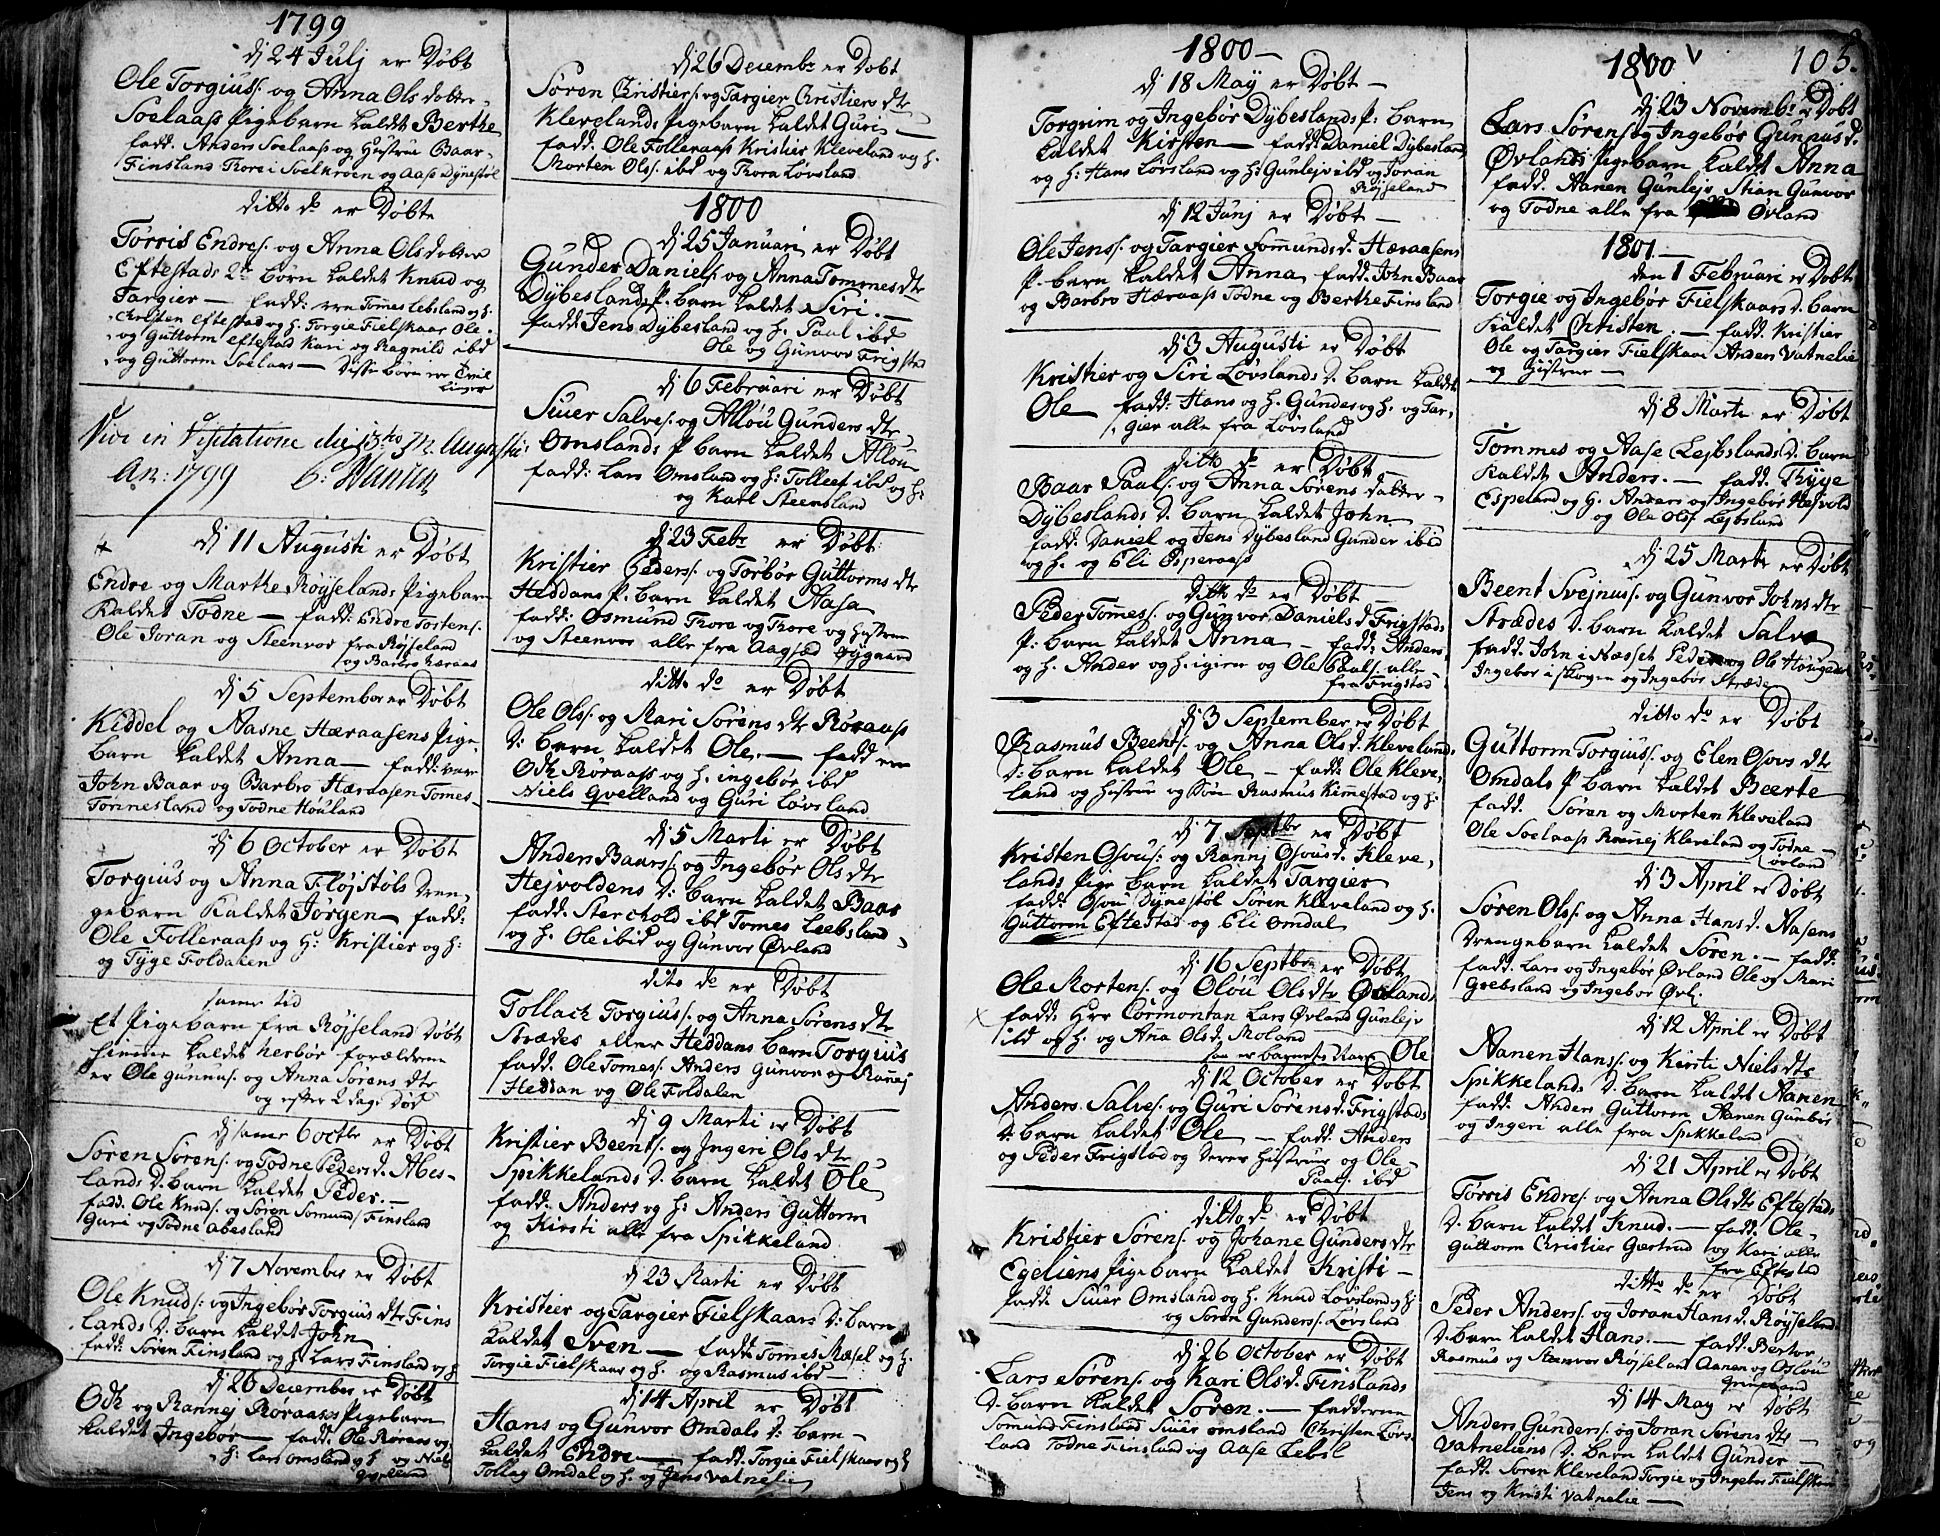 1799
dj 24 Julj er Døbt
Ole Torgius: og Anna Ols dotter
Soelaass Pigebarn kaldet Berthe
fadd. Anders Soelaass og Hustrue Baar
Finsland Thore i Soelkroen og Aase Dynestøl
ditto do er Døbte
Torris Endres: og Anna Olsdotter
Eftestads 2de børn kaldet Knud og
Targier — fadd: Tomes Lebsland og h.
Christen Eftestad og h. Torgie Fielskaar Ole
og Guttorm Eftestad Kari og Ragnild ibd
og Guttorm Soelaas — Disse børn er Tvil
linger
Vidi in Visitatione die 13tio M. Augusti
An: 1799
dj 11 Augusti er Døbt
Endre og Marthe Røyselands Pigebarn
Kaldet Todne — fadd: Endre Torstens:
Ole Joran og Steenvor fra Røjseland
og Barbro Hæraas
dj 5 September er Døbt
Kiddel og Aasne Hæraasens Pige
barn kaldet Anna — fadd: var
John Baar og Barbro Hæraasen Tomes
Tonnesland og Todne Houland
dj 6 October er Døbt
Torgius og Anna Fløjstøls Dren
gebarn Kaldet Jørgen — fadd:
Ole Folleraass og H: Kristier og h:
og Tyge Foldalen
samme tid
Et Pigebarn fra Røyseland Døbt
hiemme kaldet herbor forældrene
er Ole Gunnus: og Anna Sørens dtr
og efter 2 dage Død
dj samme 6 octbr er Døbt
Søren Sørens: og Todne Peders d. Abes
lands D. barn kaldet Peder. —
fadd. Ole Knuds: og Søren Somund Finsland
Guri og Todne abesland
dj 7 November er Døbt
Ole Knuds: og Ingebør Torgius dtr Fins
lands D. barn kaldet John
fadd: Søren Finsland og h. Lars Finsland og h
dj 26 December er Døbt
Odk og Rannej Røraass Pigebarn
kaldet Ingebør — fadd. Ole Røraas og
h: Lars omsland og h og Niels
Qvelland
dj 26 Decembr er Døbt
Søren Christiers: og Targier Christiers dtr
Klevelands Pigebarn kaldet Guri —
fadd. Ole Folleraass Kristier Kleveland og h.
Morten Ols: ibd og Thora Løvsland
1800
dj 25 Januari er Døbt
Gunder Daniels: og Anna Tommes dtr
Dybeslands P. barn kaldet Siri. —
fadd: Jens Dybesland og h. Paal ibd
Ole og Gunvor Frigstad
dj 6 Februari er Døbt
Siuer Salves: og Allou Gunders dtr
Omslands P barn kaldet Allou
fadd: Lars Omsland og h: Tollef ibd og h:
og Karl Steensland
dj 23 Febr er Døbt
Kristier Peders: og Torbor Guttorms dtr
Heddans P. barn kaldet Aasa
fadd: Osmund Thore og Thore og hustrue
og Steenvor alle fra Aagsød
ditto do er Døbt
Ole Ols: og Mari Sørens dtr Røraass
D: barn kaldet Ole. — fadd er
Odk Røraass og h. ingebør ibd
Niels Qvelland og Guri Løvsland
dj 5 Marti er Døbt
Anders Baars: og Ingebør Ols dtr
Hejvoldens D: barn kaldet Baar
fadd: Sterchold ibd Tomes Leebsland
og h. Ole ibid og Gunvor Øvland
dito do er Døbt
Tollach Torgius: og Anna Sørens dtr
Strædes eller Heddans barn Torgius
fadd. Ole Tomes: Anders Gunvor og Rannej
Heddan og Ole Foldalen
dj 9 Marti er Døbt
Kristier Beents: og Ingeri Ols dtr
Spikkelands D. barn kaldet Ole
fadd: Anders og h: Anders Guttorm
og Kirsti alle fra Spikkeland
dj 23 Marti er Døbt
Kristier og Targier Fielskaars D: barn
kaldet Sven — fadd: Tomes Mæsel og h:
Torgie Fielskaar og h. og Rasmus ibd —
dj 14 April er Døbt
Hans og Gunvor Omdals D: barn
kaldet Endre — fadd. Torgie Fielskaar og h
Tollag Omdal og h. og Jens Vatnelie
1800 —
dj 18 May er Døbt —
Torgrim og Ingebør Dybeslands P: barn
kaldet Kirsten — fadd Daniel Dybesland
og h: Hans Løvsland og h: Gunlejv ibd og Joran
Røyseland
dj 12 Junj er Døbt —
Ole Jens: og Targier Somunds d. Hæraasens
P. barn kaldet Anna fadd. John Baar
og Barbro Hæraass Todne og Berthe Finsland
dj 3 Augusti er Døbt
Kristier og Siri Løvslands D. barn kaldet
Ole — fadd: Hans og h. Gunder og h. og Tar
gier alle fra Løvsland
ditto do er Døbt
Baar Paals: og Anna Sørens datter
Dybeslands D. barn kaldet John
fadd: Daniel og Jens Dybesland Gunder ibid
og h. og Eli Esperaass
ditto do er Døbt —
Peder Tomes: og Gunvor Daniels d Frigstads
P: barn kaldet Anna — fadd: Anders
og h. Ander og h. igien og Ole Paals: alle
fra Frigstad
dj 3 September er Døbt
Rasmus Beents: og Anna Ols d. Klevelands
D: barn kaldet Ole — fadd: Ole Kleve
land og hustrue og Søn Rasmus Kimestad og h:
dj 7 Septbr er Døbt
Kristen Osous: og Rannj Osous d. Kleve
lands Pige barn kaldet Targier
fadd: Osou Dynestøl Søren Kleveland og h.
Guttorm Eftestad og Eli Omdal
dj 16 Septbr er Døbt
Ole Mortens: og Olou Ols dtr Øvlands
fadd: Herr Cormontan Lars Øvland Gunlejv
ibd og h. og Ana Ols d. Moland
saa er barnetss Navn Ole
dj 12 October er Døbt
Anders Salves: og Guri Sørens d. Frigstads
D: barn kaldet Ole — fadd. Anders
og Peder Frigstad og deres hustruer og Ole
Paals: ibd
ditto do er Døbt
Kristier Sørens: og Johane Gunders dtr
Egeliens Pigebarn kaldet Kristi —
fadd: Siuer Omsland og h. Knud Løvsland og h
og Søren Gunders: Løvsland
dj 26 October er Døbt
Lars Sørens: og Kari Ols d. Finslands
D. barn kaldet Søren. — fadderne
Somund Finsland Siuer omsland Christen Løvs
land Todne Finsland og Aase Lebsl
1800
105.
dj 23 Novembr er Døbt
Lars Sørens: og Ingebør Gunnus d.
Øvlands Pigebarn kaldet Anna
fadd. Aanen Gunlejv Stian Gunvor
og Todne alle fra Øvland
1801 —
den 1 Februari er Døbt
Torgie og Ingebør Fielskaars D. barn
Kaldet Christen. — fadd: Kristier
Ole og Targier Fielskaar Anders Vatnelie
og hustrue —
dj 8 Marti er Døbt
Tommes og Aase Lejbslands D: barn
Kaldet Anders. — fadd. Thyge
Espeland og h. Anders og Ingebør Hejvold
og Ole Olss Lejbsland
dj 25 Marti er Døbt
Beent Svejnus: og Gunvor Johns dtr
Strædes D. barn kaldet Salve
fadd. John i Næsset Peder og Ole Hougaas
Ingebor i skogen og Ingebør Stræde
ditto do er Døbt
Guttorm Torgius: og Elen Osovs dtr
Omdals P barn kaldet Beerte
fadd. Søren og Morten Kleveland
Ole Soelaass Rannej Kleveland og Todne
Øvland
dj 3 April er Døbt
Søren Ols: og Anna Hans d. Aasens
Drengebarn kaldet Søren. — fadd:
fadd. Lars og Ingebør Øvland Ole og Mari
Grebsland og Ingebør Øvl.
dj 12 April er Døbt
Aanen Hans: og Kirsti Niels dtr
Spikkelands D. barn kaldet Aanen
fadd. Anders Guttorm Aanen Gunbør
og Ingeri alle fra Spikkeland
dj 21 April er Døbt
Torris Endres: og Anna Ols dtr Eftestads
D. barn kaldet Knud. — fadd. Ole
Guttorm Christier Giertrud og Kari alle
fra Eftestad
ditto do er Døbt
Peder Anders: og Joran Hans d. Røyselands
D. barn kaldet Hans. — fadd. Berthe
Rasmus og Steenvor Røjseland Aanen og Oslou
dj 14 May er Døbt
Anders Gunders: og Joran Sørens dtr
Vatneliens D. barn kaldet Gunder —
fadd. Søren Kleveland Torgie og Ingebør Fielskaar
Jens og Kristi Vatnelie —